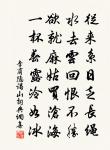 從來系日乏長繩
水去雲回恨不勝
欲就麻姑買滄海
一杯春露冷如冰
李商隱謁山詞典網